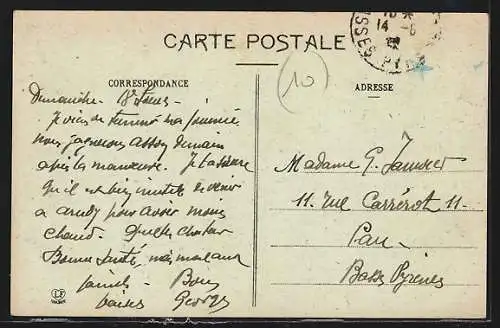 CARTE POSTALE
CORRESPONDANCE
ADRESSE
10
14 - 6
Dimanche 18 heures -
Je viens de terminer ma journée
nous gagnerons demain
après la manœuvre. Je t'assure
qu'il est bien inutile de venir
à pour avoir moins
chaud. Quelle chaleur
Bonne santé,
Bons
baisers Georges
Madame G.
11. Rue Carrérot 11-
Pau -
Basses Pyrénées